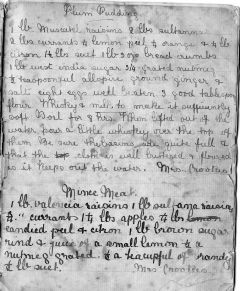 Plum Pudding
1 lb Muscatel raisins 2 lbs sultanas
2 lbs currants ½ lemon peel ½ orange & ¼ lb
citron 1¼ suet 1 lb 5 ozs bread crumbs
1 lb west india sugar grated nutmeg
teaspoonful allspice ground ginger &
salt eight eggs well beaten 3 good tablespoon
flour Whiskey & milk to make it sufficiently
soft Boil for 8 hrs. When lifted out of the
water pour a little whiskey over the top of
them Be sure the basins are quite full &
that the cloth is well buttered & floured
as it keeps out the water. Mrs Crookes
Mince Meat.
1 lb valencia raisins 1 lb sultana raisins
currants 1½ lbs apples ½ lb
candied peel & citron 1 lb brown sugar
rind & juice of a small lemon & a
nutmeg grated. & a teacupful of brandy
½ lb suet. Mrs Crookes